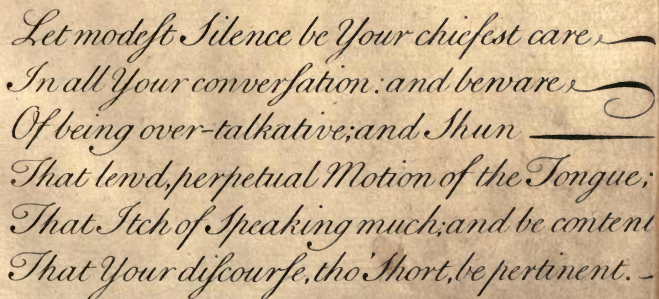 Let modeſt Silence be Your chiefest care
In all Your converſation: and beware
Of being over-talkative; and Shun
That lewd, perpetual Motion of the Tongue;
That Itch of Speaking much; and be content
That Your diſcourſe, tho' Short, be pertinent.